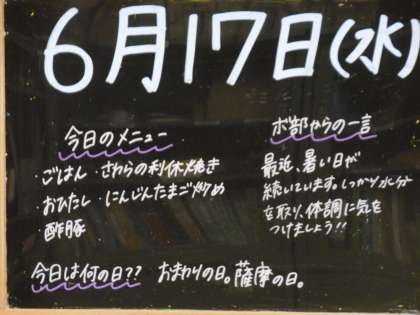 6月17日(水)
今日のメニュー
・ごはん ・さわらの利休焼き
・おひたし ・にんじんたまご炒め
酢豚
ボ部からの一言
最近、暑い日が
続いています。しっかり水分
を取り、体調に気を
つけましょう!!
今日は何の日?? おまわりの日。薩摩の日。